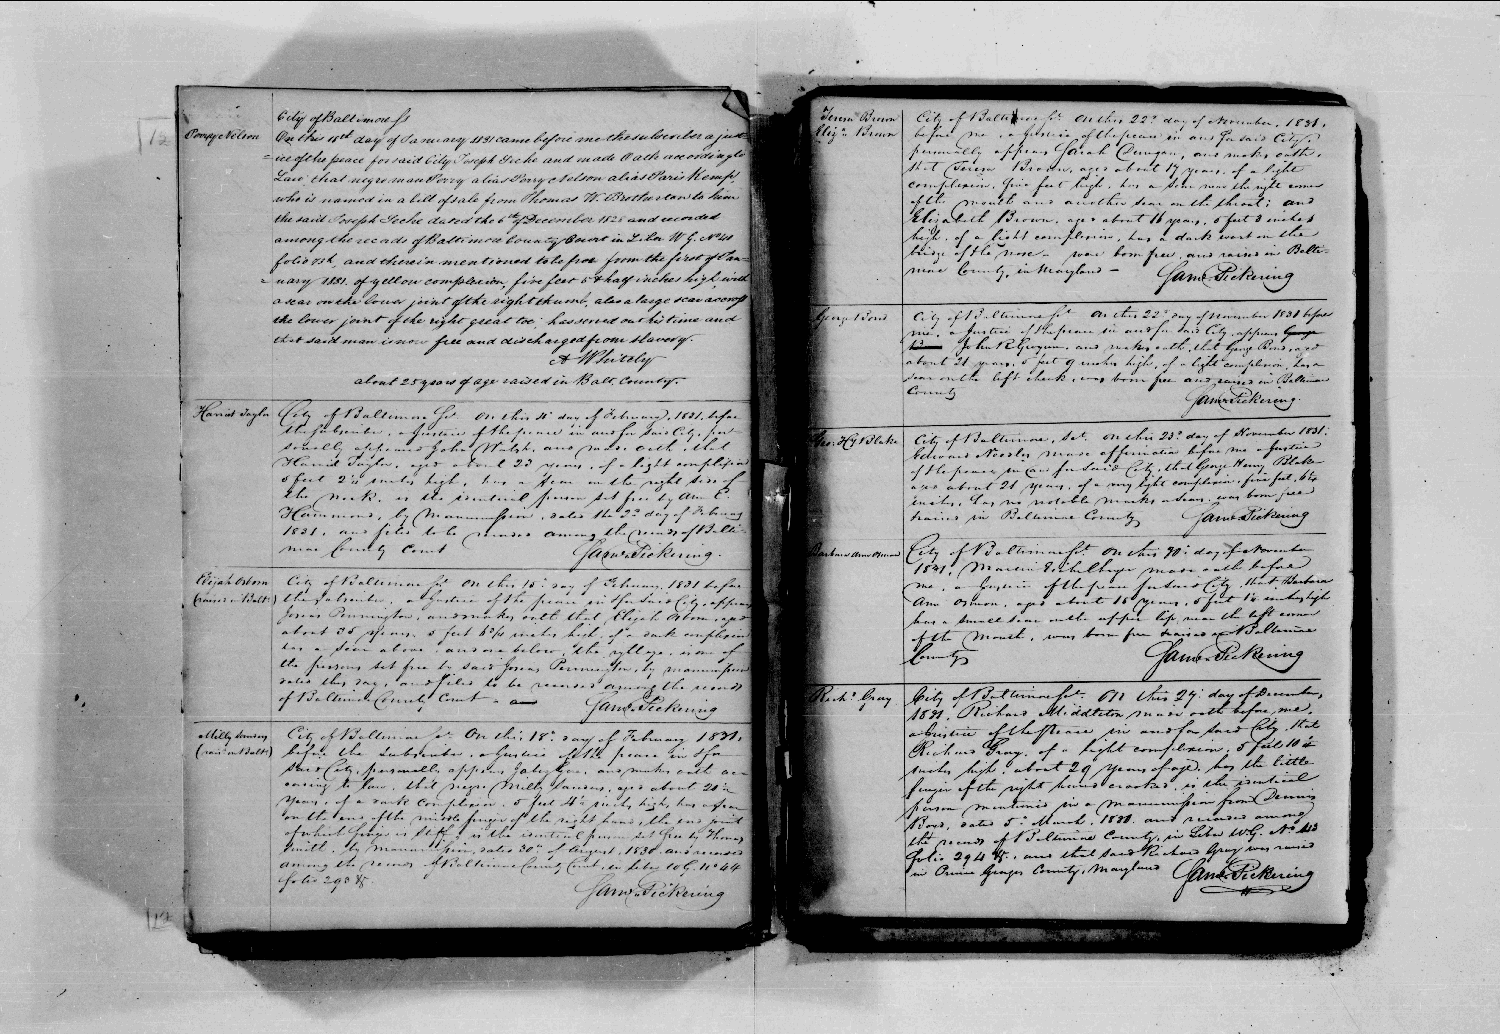 Perry Nelson
City of Baltimore Ss
On this 18th day of January 1831 came before me the subscriber a jus-
=tice of the peace for said City Joseph Leche and made Oath according to
Law that negro man Perry alias Perry Nelson alias Paris Kemp
who is named in a bill of sale from Thomas W. to him
the said Joseph Leche dated the 6th of December 1825 and recorded
among the records of Baltimore County Court in Liber W G. No
folio and therein mentioned to be free from the first of Jan-
=uary 1831. of yellow complexion, five feet 5 & half inches high with
a scar on the lower joint of the right thumb, also a large scar across
the lower joint of the right great toe; has served out his time and
that said man is now free and discharged from slavery.
A Whitely
about 25 years of age raised in Balt. County.
Harriet Taylor
City of Baltimore Sct. On this day of February, 1831, before
the subscriber, a Justice of the peace in and for said City, per-
sonally appeared John Walsh, and made oath that
Harriet Taylor, aged about 23 years, of a light complexion
5 feet 2½ inches high, has a scar on the right side of
the neck, is the identical person set free by Ann C.
Hammond, by Manumission, dated the 2d day of February
1831, and filed to be recorded among the records of Balti-
more County Court
James Pickering.
Elijah Osborn
(raised in Balto:)
City of Baltimore Sct. On this 18th day of February, 1831 before
the subscriber, a Justice of the peace in & for said City, appears
Josias Pennington, and makes oath that Elijah Osborn, aged
about 35 years, 5 feet inches high, of a dark complexion
has a scar above, and one below, the eye, is one of
the persons set free by said Josias Pennington, by manumission
dated this day, and filed to be recorded among the records
of Baltimore County Court
James Pickering
Milly
(raised in Balto:)
City of Baltimore Sct. On this 18th day of February 1831,
before the subscriber, a Justice of the peace in & for
said City, personally appears and makes oath ac-
cording to law, that negro Milly aged about
years, of a dark complexion, 5 feet inches high, has a scar
on the end of the middle finger of the right hand, the end joint
of which finger is stiff, is the identical person set free by Thomas
by manumission, dated 30th of August, 1830, and recorded
among the records of Baltimore County Court, in Liber W G. No 44
folio 293 &c.
James Pickering
Teresa Brown
Elizh. Brown
City of Baltimore Sct. On this 22d day of November, 1831,
before me, a Justice of the peace in and for said City,
personally appears Sarah and makes oath,
that Teresa Brown, aged about 17 years, of a light
complexion, five feet high, has a scar near the right corner
of the mouth and another scar on the throat; and
Elizabeth Brown, aged about 16 years, 5 feet 3 inches
high, of a light complexion, has a dark wart on the
bridge of the nose - were born free, and raised in Balti-
more County, in Maryland -
James Pickering
George Bond
City of Baltimore Sct. On this 22d day of November 1831 before
me, a Justice of the peace in and for said City, appears George
John R. and makes oath, that George Bond, aged
about 21 years, 5 feet 9 inches high, of a light complexion, has a
scar on the left cheek, was born free and raised in Baltimore
County
James Pickering.
Geo. Hy. Blake
City of Baltimore, Sct. On this 23d day of November 1831,
Edward Needles made affirmation before me a Justice
of the peace in and for said City, that George Henry Blake
aged about 21 years, of a very light complexion, five feet, 6¼
inches, has no notable marks or scars, was born free
& raised in Baltimore County
James Pickering
Barbara Ann Osmon
City of Baltimore Sct. On this 30th day of November
1831, Martin made oath before
me, a Justice of the peace for said City, that Barbara
Ann Osmon, aged about 16 years, 5 feet inches high
has a small scar on the upper lip, near the left corner
of the mouth, was born free & raised in Baltimore
County
James Pickering
Richd. Gray
City of Baltimore Sct. On this 29th day of December,
1831, Richard Middleton made oath before me,
a Justice of the Peace in and for said City, that
Richard Gray, of a light complexion, 5 feet 10¼
inches high, about 29 years of age, has the little
finger of the right hand crooked, is the identical
person mentioned in a manumission from Dennis
dated 5th March, 1830 and recorded among
the records of Baltimore County, in Liber W G. No
folio 294 &c. and that said Richard Gray was raised
in Prince Georges County, Maryland
James Pickering